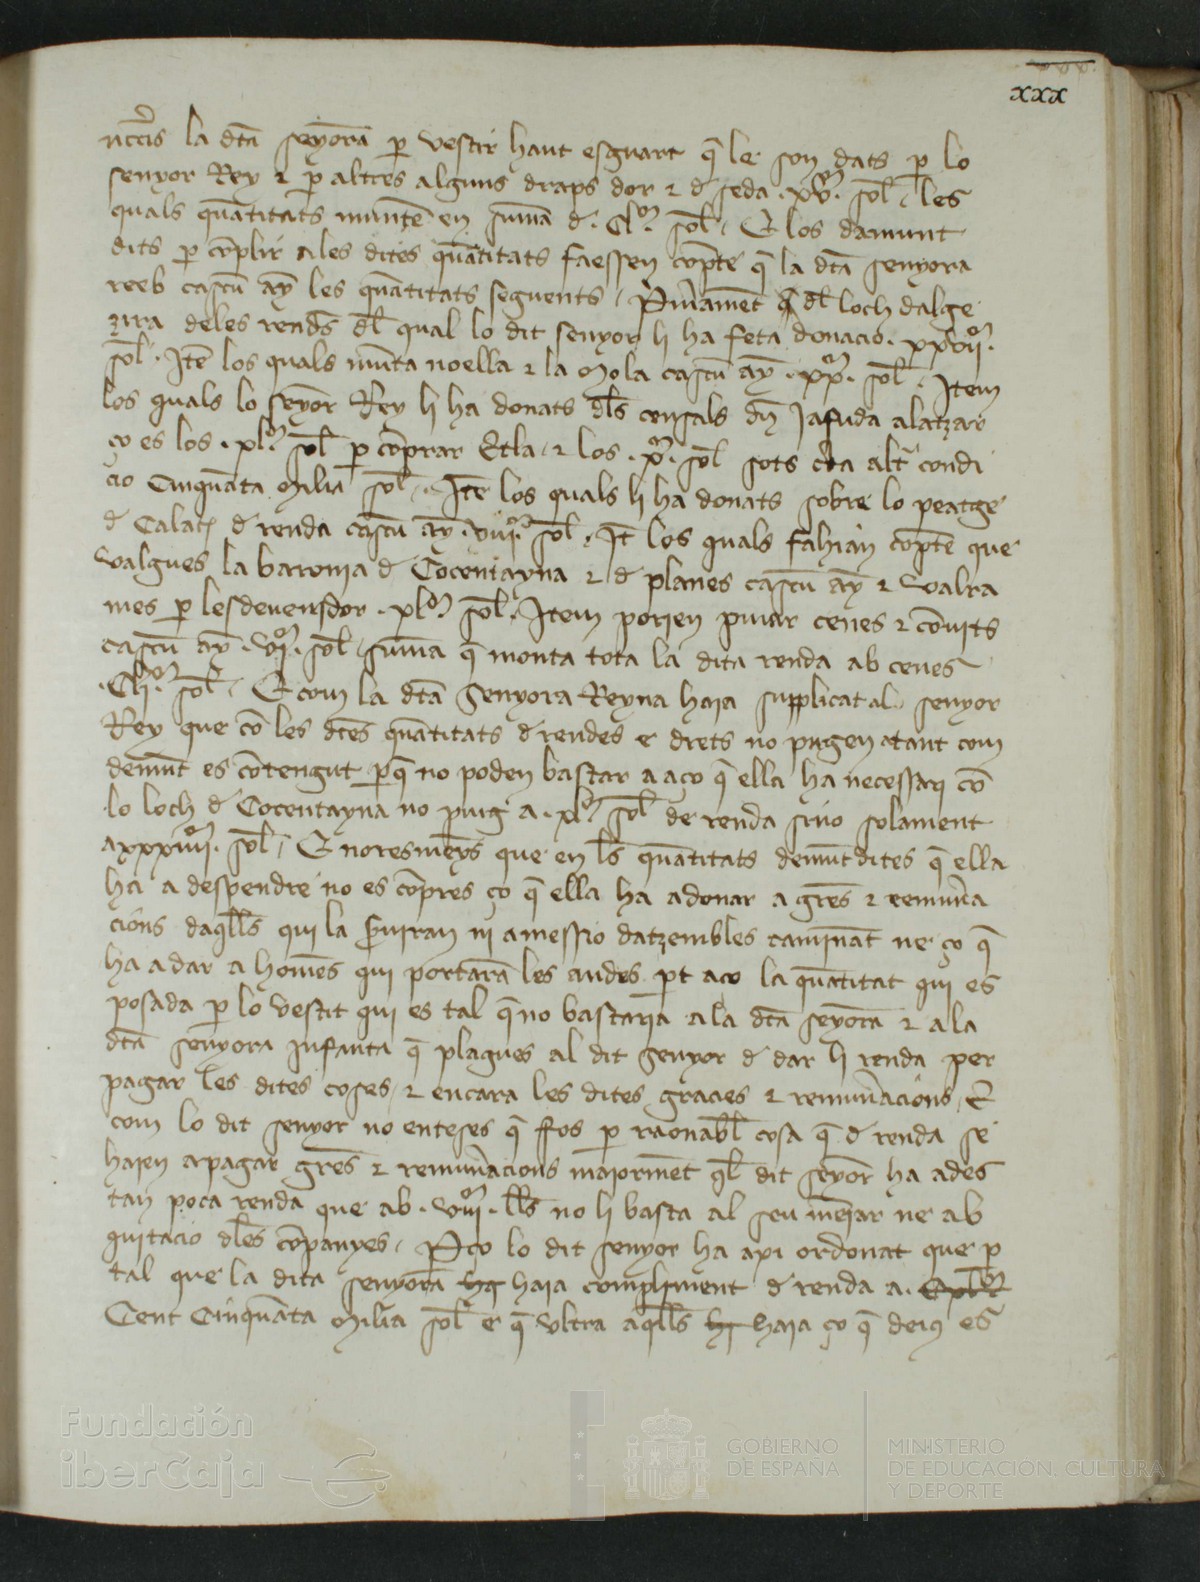 xxx
nccīs la dta seyora p vestir haut esguart q̄ le son dats p lo
senyor Rey & p altres alguns draps dor & d seda . xvm. sol. les
quals quātitats muntē en suma d . Clm. sol. E los damunt
dits p cōplir ales dites quātitats faessen cōpte q̄ la dta senyora
reeb cascū ay les quātitats seguents. Primamēt dl loch dalge
zira deles rendes dl qual lo dit senyor li ha feta donacio . xxviim.
sol. Itē los quals mūta noella & la Mola cascū ay . xxm. sol. Item
los quals lo seyor Rey li ha donats dls censals dn Jafuda alatzar
ço es los . xlm. sol p cōprar Etla & los . xm. sol sots cta altr condi
cio Cinquāta Milia sol. Itē los quals li ha donats sobre lo peatge
d Calat d renda cascū ay . viiim. sol. It los quals fahian cōpte que
valgues la baronia d Cocentayna & d planes cascū ay & valra
mes p lesdevenidor . xlm. sol. Item porien puiar cenes & cōvits
cascū ay . vim. sol. suma q̄ monta tota la dita renda ab cenes
. Clim. sol. E com la dta Senyora Reyna haia supplicat al senyor
Rey que cō les dtes quātitats d rendes e drets no pugen atant com
demūt es cōtengut pq̄ no poden bastar a aço q̄ ella ha necessari cō
lo loch d Cocentayna no puig a . xlm. sol de renda sino solament
axxxiiiim. sol. E noresmeys que en ls quātitats demūt dites q̄ ella
ha a despendre no es cōpres ço q̄ ella ha adonar a gres & remuna
cions daqlls qui la sviran ni amessio datzembles camināt ne ço q̄
ha adar a homēs qui portarā les andes pt aço la quātitat qui es
posada p lo vestit qui es tal q̄ no bastaria ala dta seyora & ala
dta senyora infanta q̄ plagues al dit Senyor d dar li renda per
pagar les dites coses & encara les dites gracies & remunacions. E
com lo dit senyor no enteses q̄ fos p raonabl cosa q̄ d renda se
haien apagar gres & remunacions maiormēt ql dit seyor ha ades
tan poca renda que ab . viiim. lls no li basta al seu meiar ne ab
quitacio dles cōpanyes. Pço lo dit senyor ha axi ordonat que p
tal que la dita senyora haia compliment d renda a.
Cent Cinquāta Milia sol e q̄ ultra aqlls haia ço q̄ deius es